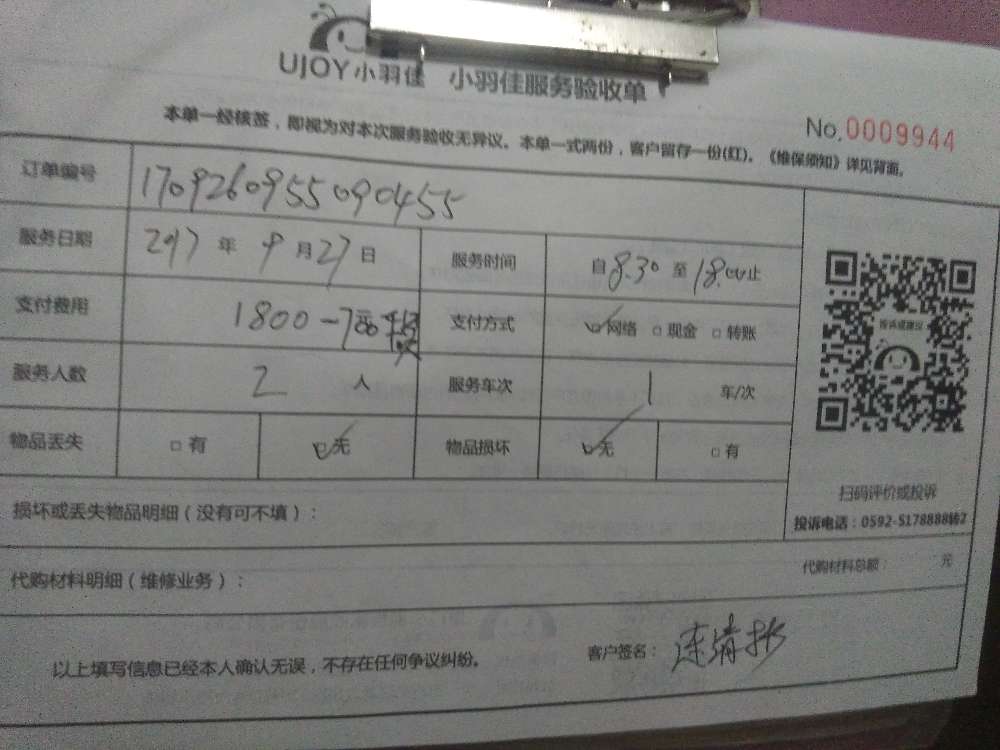 UJOY小羽佳 小羽佳服务验收单
No.0009944
本单一经核签，即视为对本次服务验收无异议。本单一式两份，客户留存一份(红)。《维保须知》详见背面。
订单编号 1709260955090455
服务日期 2017年9月27日 服务时间 自8.30至18.00止
支付费用 1800-700 支付方式 网络 现金 转账
服务人数 2人 服务车次 1 车/次
物品丢失 有 无 物品损坏 无 有
投诉或建议
扫码评价或投诉
投诉电话：0592-5178888转2
损坏或丢失物品明细（没有可不填）：
代购材料明细（维修业务）： 代购材料总额： 元
以上填写信息已经本人确认无误，不存在任何争议纠纷。 客户签名：连清